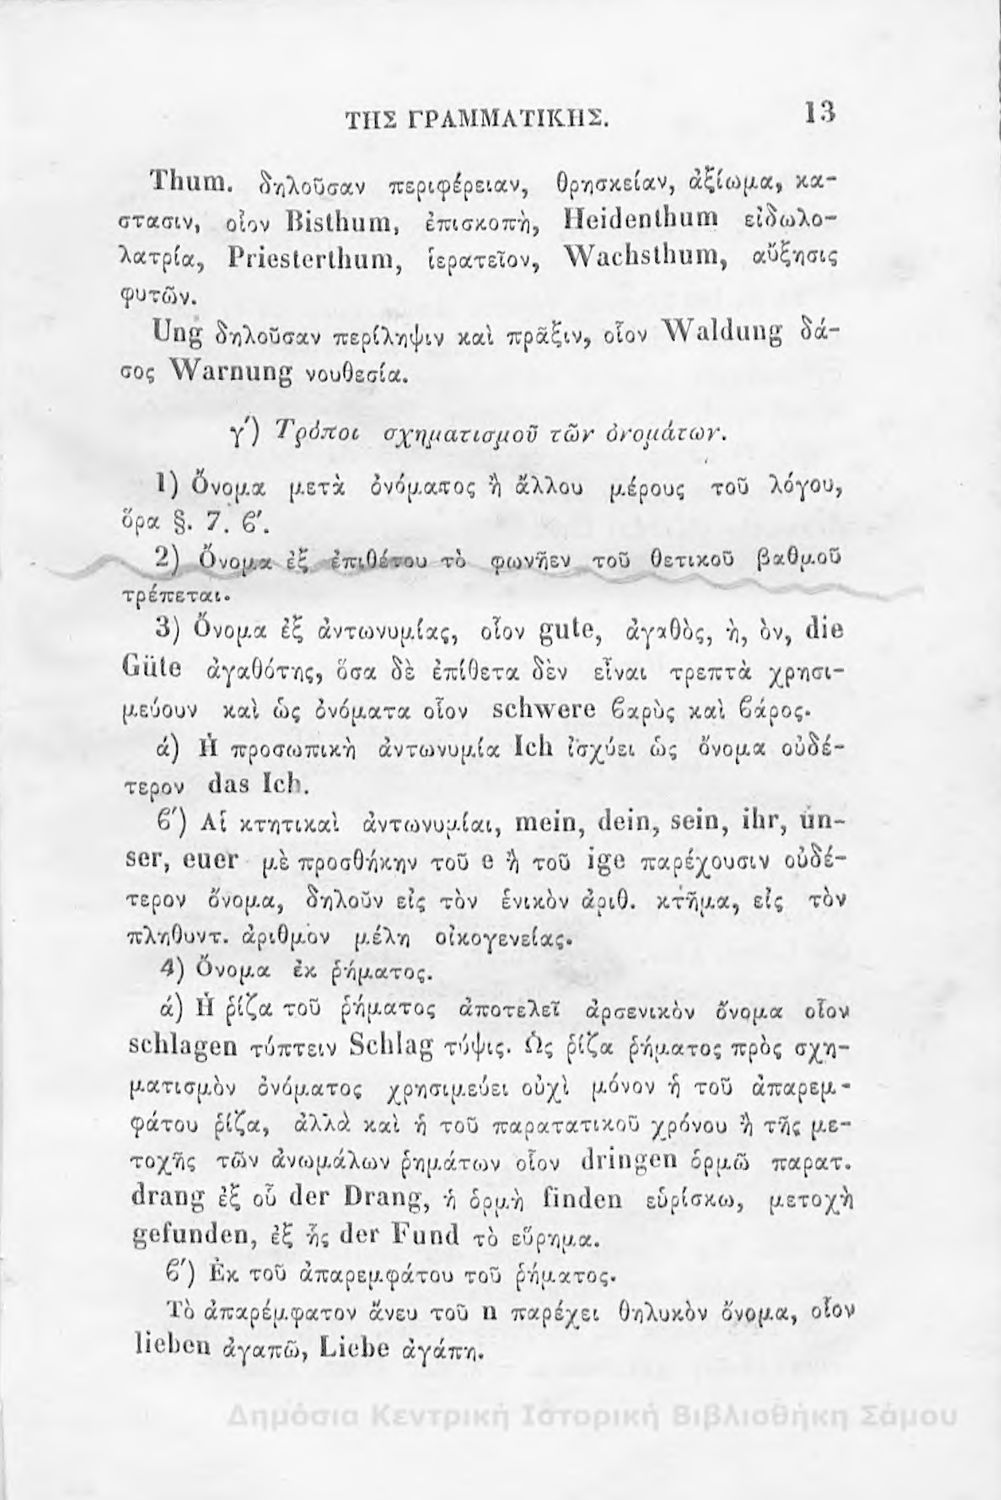 ΤΗΣ ΓΡΑΜΜΑΤΙΚΗΣ. 13
Thum. δηλοῦσαν περιφέρειαν, θρησκείαν, ἀξίωμα, κα-
στασιν, οἷον Bisthum, ἐπισκοπὴ, Heidenthum εἰδωλο-
λατρία, Priesterthum, ἱερατεῖον, Wachsthum, αὔξησις
φυτῶν.
Ung δηλοῦσαν περίληψιν καὶ πρᾶξιν, οἷον Waldung δά-
σος Warnung νουθεσία.
γ') Τρόποι σχηματισμοῦ τῶν ὀνομάτων.
1) Ὄνομα μετὰ ὀνόματος ἢ ἄλλου μέρους τοῦ λόγου,
ὅρα §. 7. ϐ'.
2) Ὄνομα ἐξ ἐπιθέτου τὸ φωνῆεν τοῦ θετικοῦ βαθμοῦ
τρέπεται.
3) Ὄνομα ἐξ ἀντωνυμίας, οἷον gute, ἀγαθὸς, ὴ, ὸν, die
Güte ἀγαθότης, ὅσα δὲ ἐπίθετα δὲν εἶναι τρεπτὰ χρησι-
μεύουν καὶ ὡς ὀνόματα οἷον schwere ϐαρὺς καὶ ϐάρος.
ά) Ἡ προσωπικὴ ἀντωνυμία Ich ἰσχύει ὡς ὄνομα οὐδέ-
τερον das Ich.
ϐ') Αἱ κτητικαὶ ἀντωνυμίαι, mein, dein, sein, ihr, un-
ser, euer μὲ προσθήκην τοῦ e ἢ τοῦ ige παρέχουσιν οὐδέ-
τερον ὄνομα, δηλοῦν εἰς τὸν ἑνικὸν ἀριθ. κτῆμα, εἰς τὸν
πληθυντ. ἀριθμὸν μέλη οἰκογενείας.
4) Ὄνομα ἐκ ῥήματος.
ά) Ἡ ῥίζα τοῦ ῥήματος ἀποτελεῖ ἀρσενικὸν ὄνομα οἷον
schlagen τύπτειν Schlag τύψις. Ὡς ῥίζα ῥήματος πρὸς σχη-
ματισμὸν ὀνόματος χρησιμεύει οὐχὶ μόνον ἡ τοῦ ἀπαρεμ-
φάτου ῥίζα, ἀλλὰ καὶ ἡ τοῦ παρατατικοῦ χρόνου ἢ τῆς με-
τοχῆς τῶν ἀνωμάλων ῥημάτων οἷον dringen ὁρμῶ παρατ.
drang ἐξ οὗ der Drang, ἡ ὁρμὴ finden εὑρίσκω, μετοχὴ
gefunden, ἐξ ἧς der Fund τὸ εὕρημα.
ϐ') Ἐκ τοῦ ἀπαρεμφάτου τοῦ ῥήματος.
Τὸ ἀπαρέμφατον ἄνευ τοῦ n παρέχει θηλυκὸν ὄνομα, οἷον
lieben ἀγαπῶ, Liebe ἀγάπη.
Δημόσια Κεντρική Ιστορική Βιβλιοθήκη Σάμου